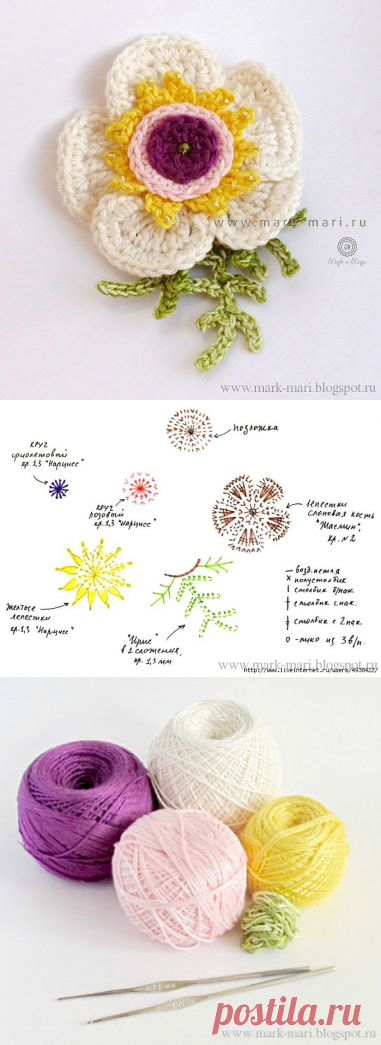 www.mark-mari.ru
Mark & Mari
www.mark-mari.blogspot.ru
подложка
круг
фиолетовый
кр. 1,3 "Нарцисс"
круг
розовый
кр. 1,3 "Нарцисс"
лепестки
слоновая кость
"Жасмин",
кр. №2
Желтые
лепестки
кр. 1,3 "Нарцисс"
"Ирис"
в 2 сложения,
кр. 1,3 мм
— возд. петля
x полустолбик
| столбик б/нак
† столбик с нак.
‡ столбик с 2 нак.
o -пико из 3 в/п.
www.mark-mari.blogspot.ru
http://www.liveinternet.ru/users/4938422/
postila.ru
www.mark-mari.blogspot.ru